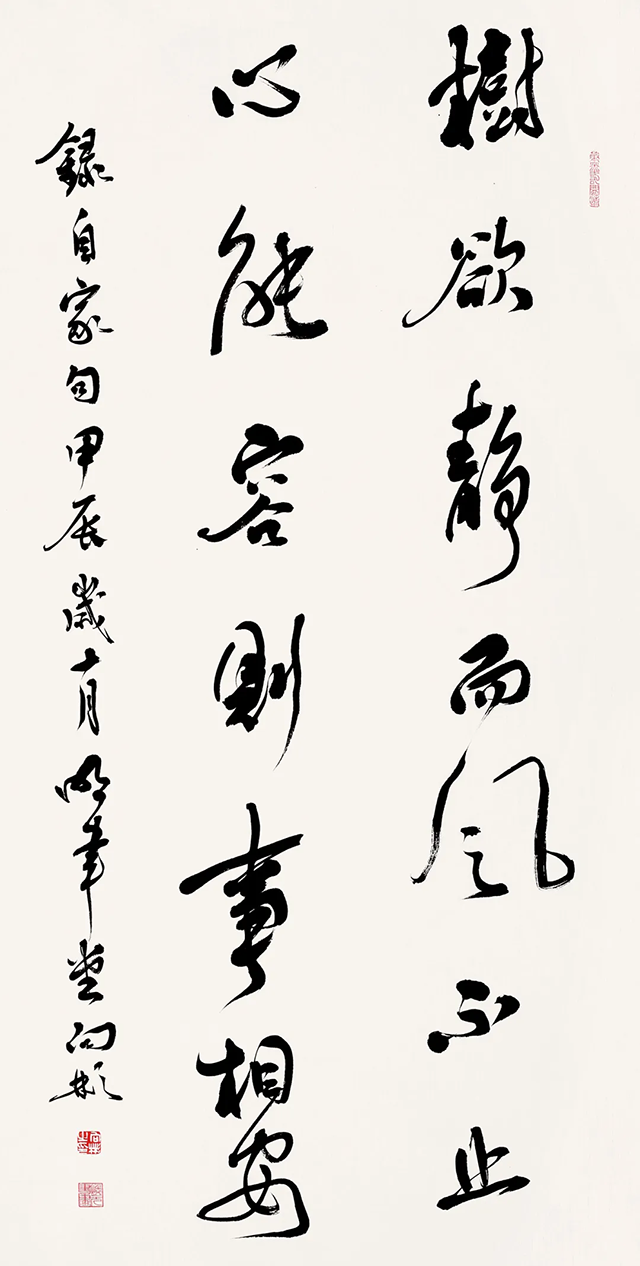 樹欲靜而風不止
心能容則事相安
錄自家句甲辰歲十月明華堂向彬